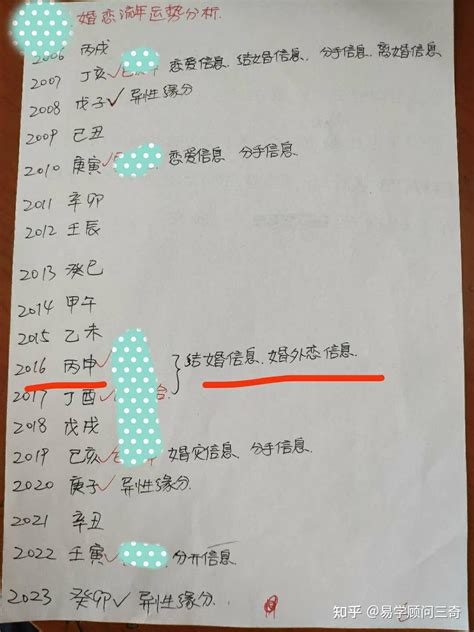 婚恋流年运势分析
2006 丙戌
2007 丁亥 ✓ 恋爱信息、结婚信息、分手信息、离婚信息
2008 戊子 ✓ 异性缘分
2009 己丑
2010 庚寅 ✓ 恋爱信息 分手信息
2011 辛卯
2012 壬辰
2013 癸巳
2014 甲午
2015 乙未
2016 丙申 ✓ 结婚信息、婚外恋信息
2017 丁酉 ✓ 合
2018 戊戌
2019 己亥 ✓ 婚灾信息、分手信息
2020 庚子 ✓ 异性缘分
2021 辛丑
2022 壬寅 ✓ 分开信息
2023 癸卯 ✓ 异性缘分
知乎 @易学顾问三奇